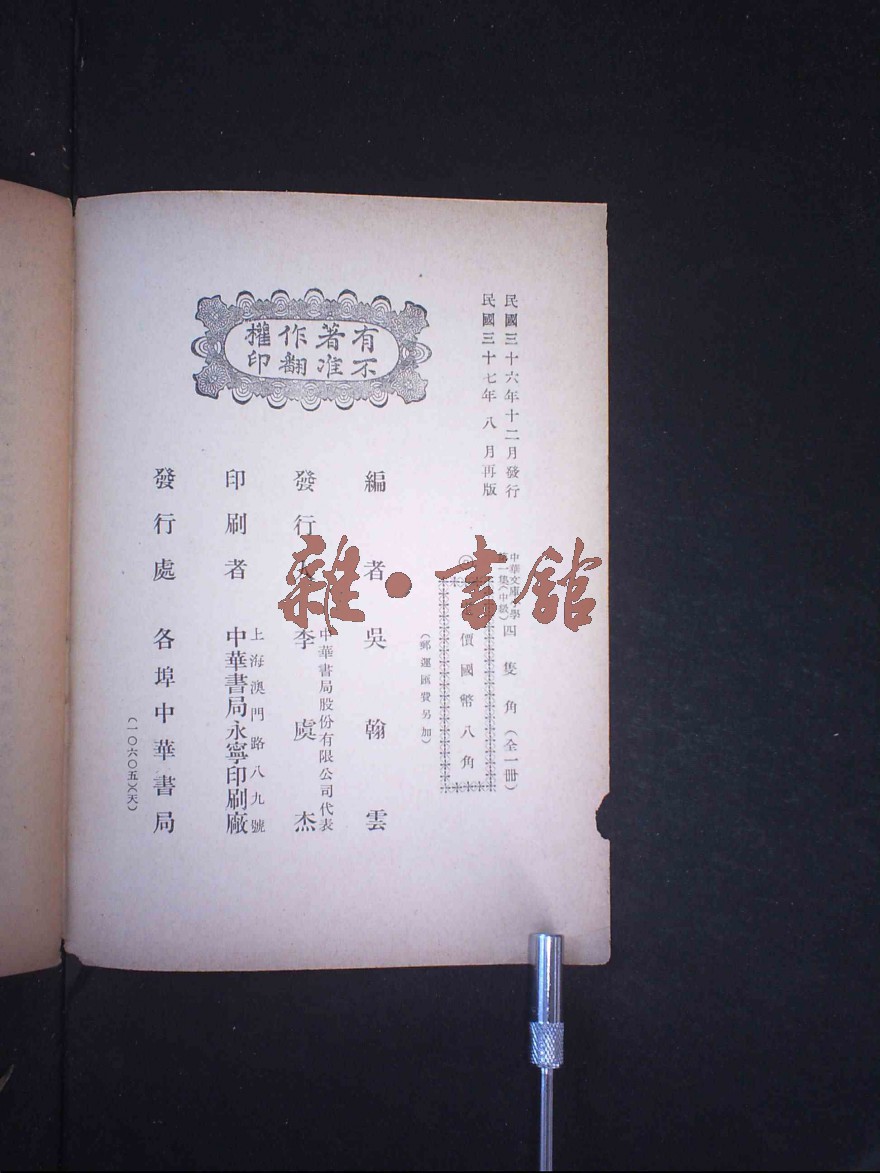 民國三十六年十二月發行
民國三十七年八月再版
中華文庫
第一集(中級)
四隻角(全一冊)
價國幣八角
(郵運匯費另加)
有著作權
不准翻印
編者 吳翰雲
發行
中華書局股份有限公司代表
李虞杰
印刷者
上海澳門路八九號
中華書局永寧印刷廠
發行處 各埠中華書局
(一〇六〇五)(天)
雜·書館